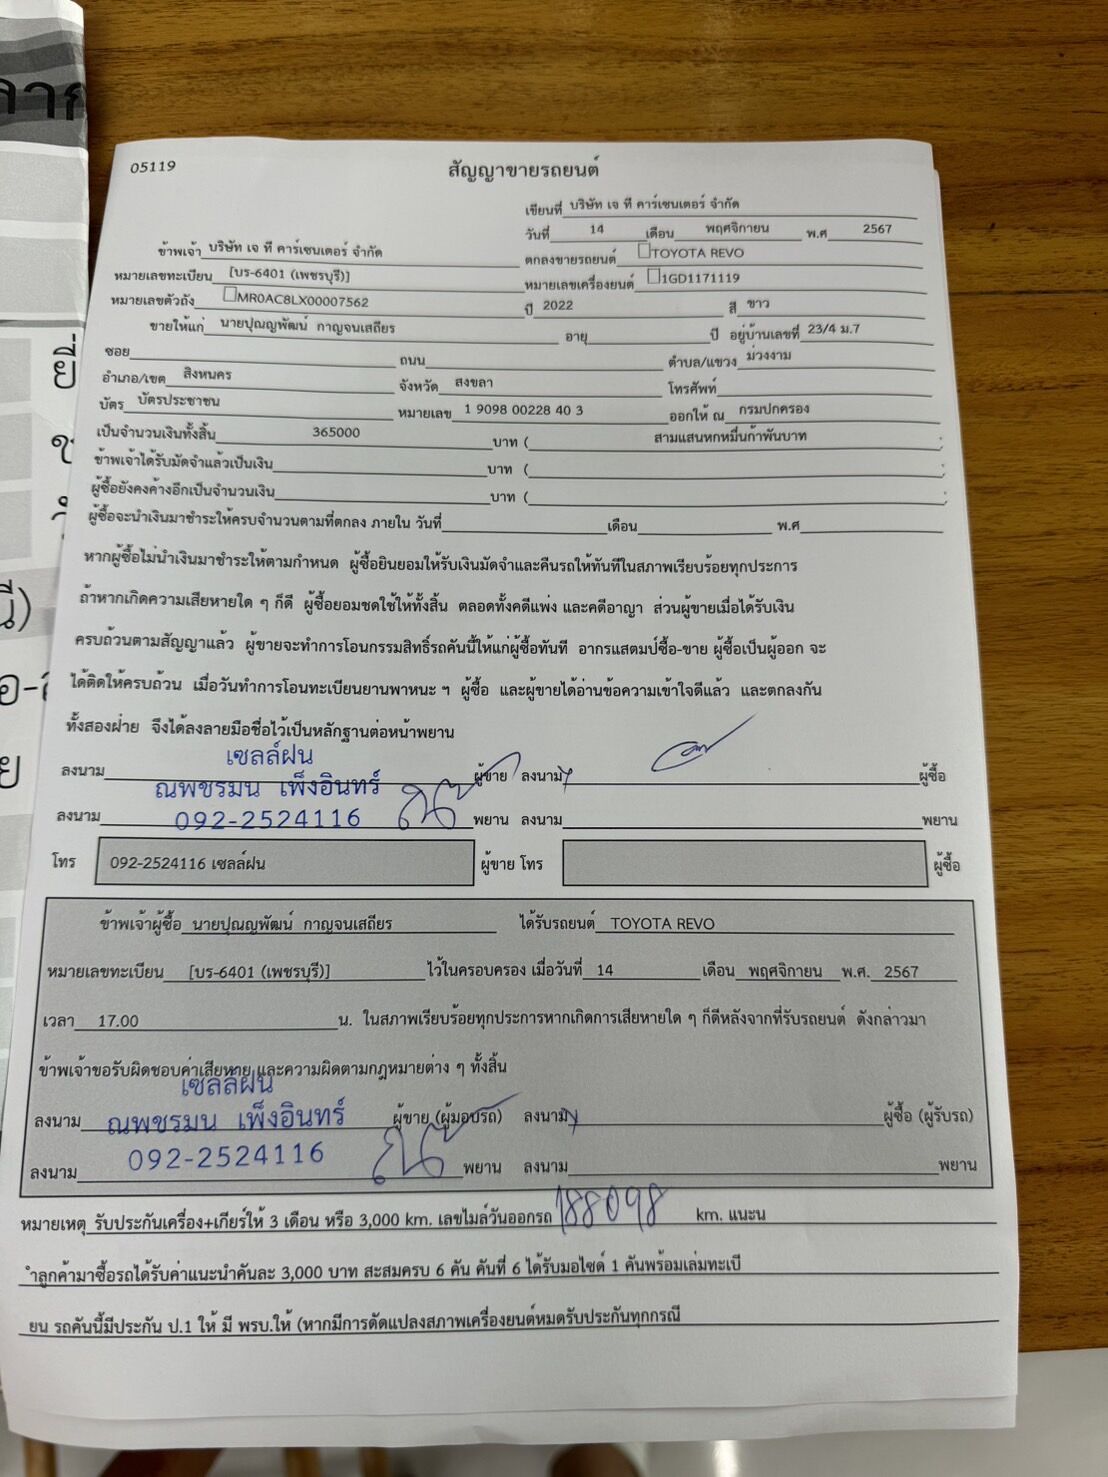 ลาก
ยี่
นี)
05119
สัญญาขายรถยนต์
เขียนที่ บริษัท เจ ที คาร์เซนเตอร์ จำกัด
วันที่ 14 เดือน พฤศจิกายน พ.ศ 2567
ข้าพเจ้า บริษัท เจ ที คาร์เซนเตอร์ จำกัด ตกลงขายรถยนต์ TOYOTA REVO
หมายเลขทะเบียน [บร-6401 (เพชรบุรี)] หมายเลขเครื่องยนต์ 1GD1171119
หมายเลขตัวถัง MR0AC8LX00007562 ปี 2022 สี ขาว
ขายให้แก่ นายปุณญพัฒน์ กาญจนเสถียร อายุ ปี อยู่บ้านเลขที่ 23/4 ม.7
ซอย ถนน ตำบล/แขวง ม่วงงาม
อำเภอ/เขต สิงหนคร จังหวัด สงขลา โทรศัพท์
บัตร บัตรประชาชน หมายเลข 1 9098 00228 40 3 ออกให้ ณ กรมปกครอง
เป็นจำนวนเงินทั้งสิ้น 365000 บาท ( สามแสนหกหมื่นก้าพันบาท
ข้าพเจ้าได้รับมัดจำแล้วเป็นเงิน บาท (
ผู้ซื้อยังคงค้างอีกเป็นจำนวนเงิน บาท (
ผู้ซื้อจะนำเงินมาชำระให้ครบจำนวนตามที่ตกลง ภายใน วันที่ เดือน พ.ศ
หากผู้ซื้อไม่นำเงินมาชำระให้ตามกำหนด ผู้ซื้อยินยอมให้รับเงินมัดจำและคืนรถให้ทันทีในสภาพเรียบร้อยทุกประการ
ถ้าหากเกิดความเสียหายใด ๆ ก็ดี ผู้ซื้อยอมชดใช้ให้ทั้งสิ้น ตลอดทั้งคดีแพ่ง และคดีอาญา ส่วนผู้ขายเมื่อได้รับเงิน
ครบถ้วนตามสัญญาแล้ว ผู้ขายจะทำการโอนกรรมสิทธิ์รถคันนี้ให้แก่ผู้ซื้อทันที อากรแสตมป์ซื้อ-ขาย ผู้ซื้อเป็นผู้ออก จะ
ได้ติดให้ครบถ้วน เมื่อวันทำการโอนทะเบียนยานพาหนะ ฯ ผู้ซื้อ และผู้ขายได้อ่านข้อความเข้าใจดีแล้ว และตกลงกัน
ทั้งสองฝ่าย จึงได้ลงลายมือชื่อไว้เป็นหลักฐานต่อหน้าพยาน
เซลล์ฝน
ลงนาม ผู้ขาย ลงนาม ผู้ซื้อ
ณพชรมน เพ็งอินทร์
ลงนาม 092-2524116 พยาน ลงนาม พยาน
โทร 092-2524116 เซลล์ฝน ผู้ขาย โทร ผู้ซื้อ
ข้าพเจ้าผู้ซื้อ นายปุณญพัฒน์ กาญจนเสถียร ได้รับรถยนต์ TOYOTA REVO
หมายเลขทะเบียน [บร-6401 (เพชรบุรี)] ไว้ในครอบครอง เมื่อวันที่ 14 เดือน พฤศจิกายน พ.ศ. 2567
เวลา 17.00 น. ในสภาพเรียบร้อยทุกประการหากเกิดการเสียหายใด ๆ ก็ดีหลังจากที่รับรถยนต์ ดังกล่าวมา
ข้าพเจ้าขอรับผิดชอบค่าเสียหาย และความผิดตามกฎหมายต่าง ๆ ทั้งสิ้น
เซลล์ฝน
ลงนาม ณพชรมน เพ็งอินทร์ ผู้ขาย (ผู้มอบรถ) ลงนาม ผู้ซื้อ (ผู้รับรถ)
ลงนาม 092-2524116 พยาน ลงนาม พยาน
หมายเหตุ รับประกันเครื่อง+เกียร์ให้ 3 เดือน หรือ 3,000 km. เลขไมล์วันออกรถ 188098 km. แนะน
ำลูกค้ามาซื้อรถได้รับค่าแนะนำคันละ 3,000 บาท สะสมครบ 6 คัน คันที่ 6 ได้รับมอไซด์ 1 คันพร้อมเล่มทะเบี
ยน รถคันนี้มีประกัน ป.1 ให้ มี พรบ.ให้ (หากมีการดัดแปลงสภาพเครื่องยนต์หมดรับประกันทุกกรณี